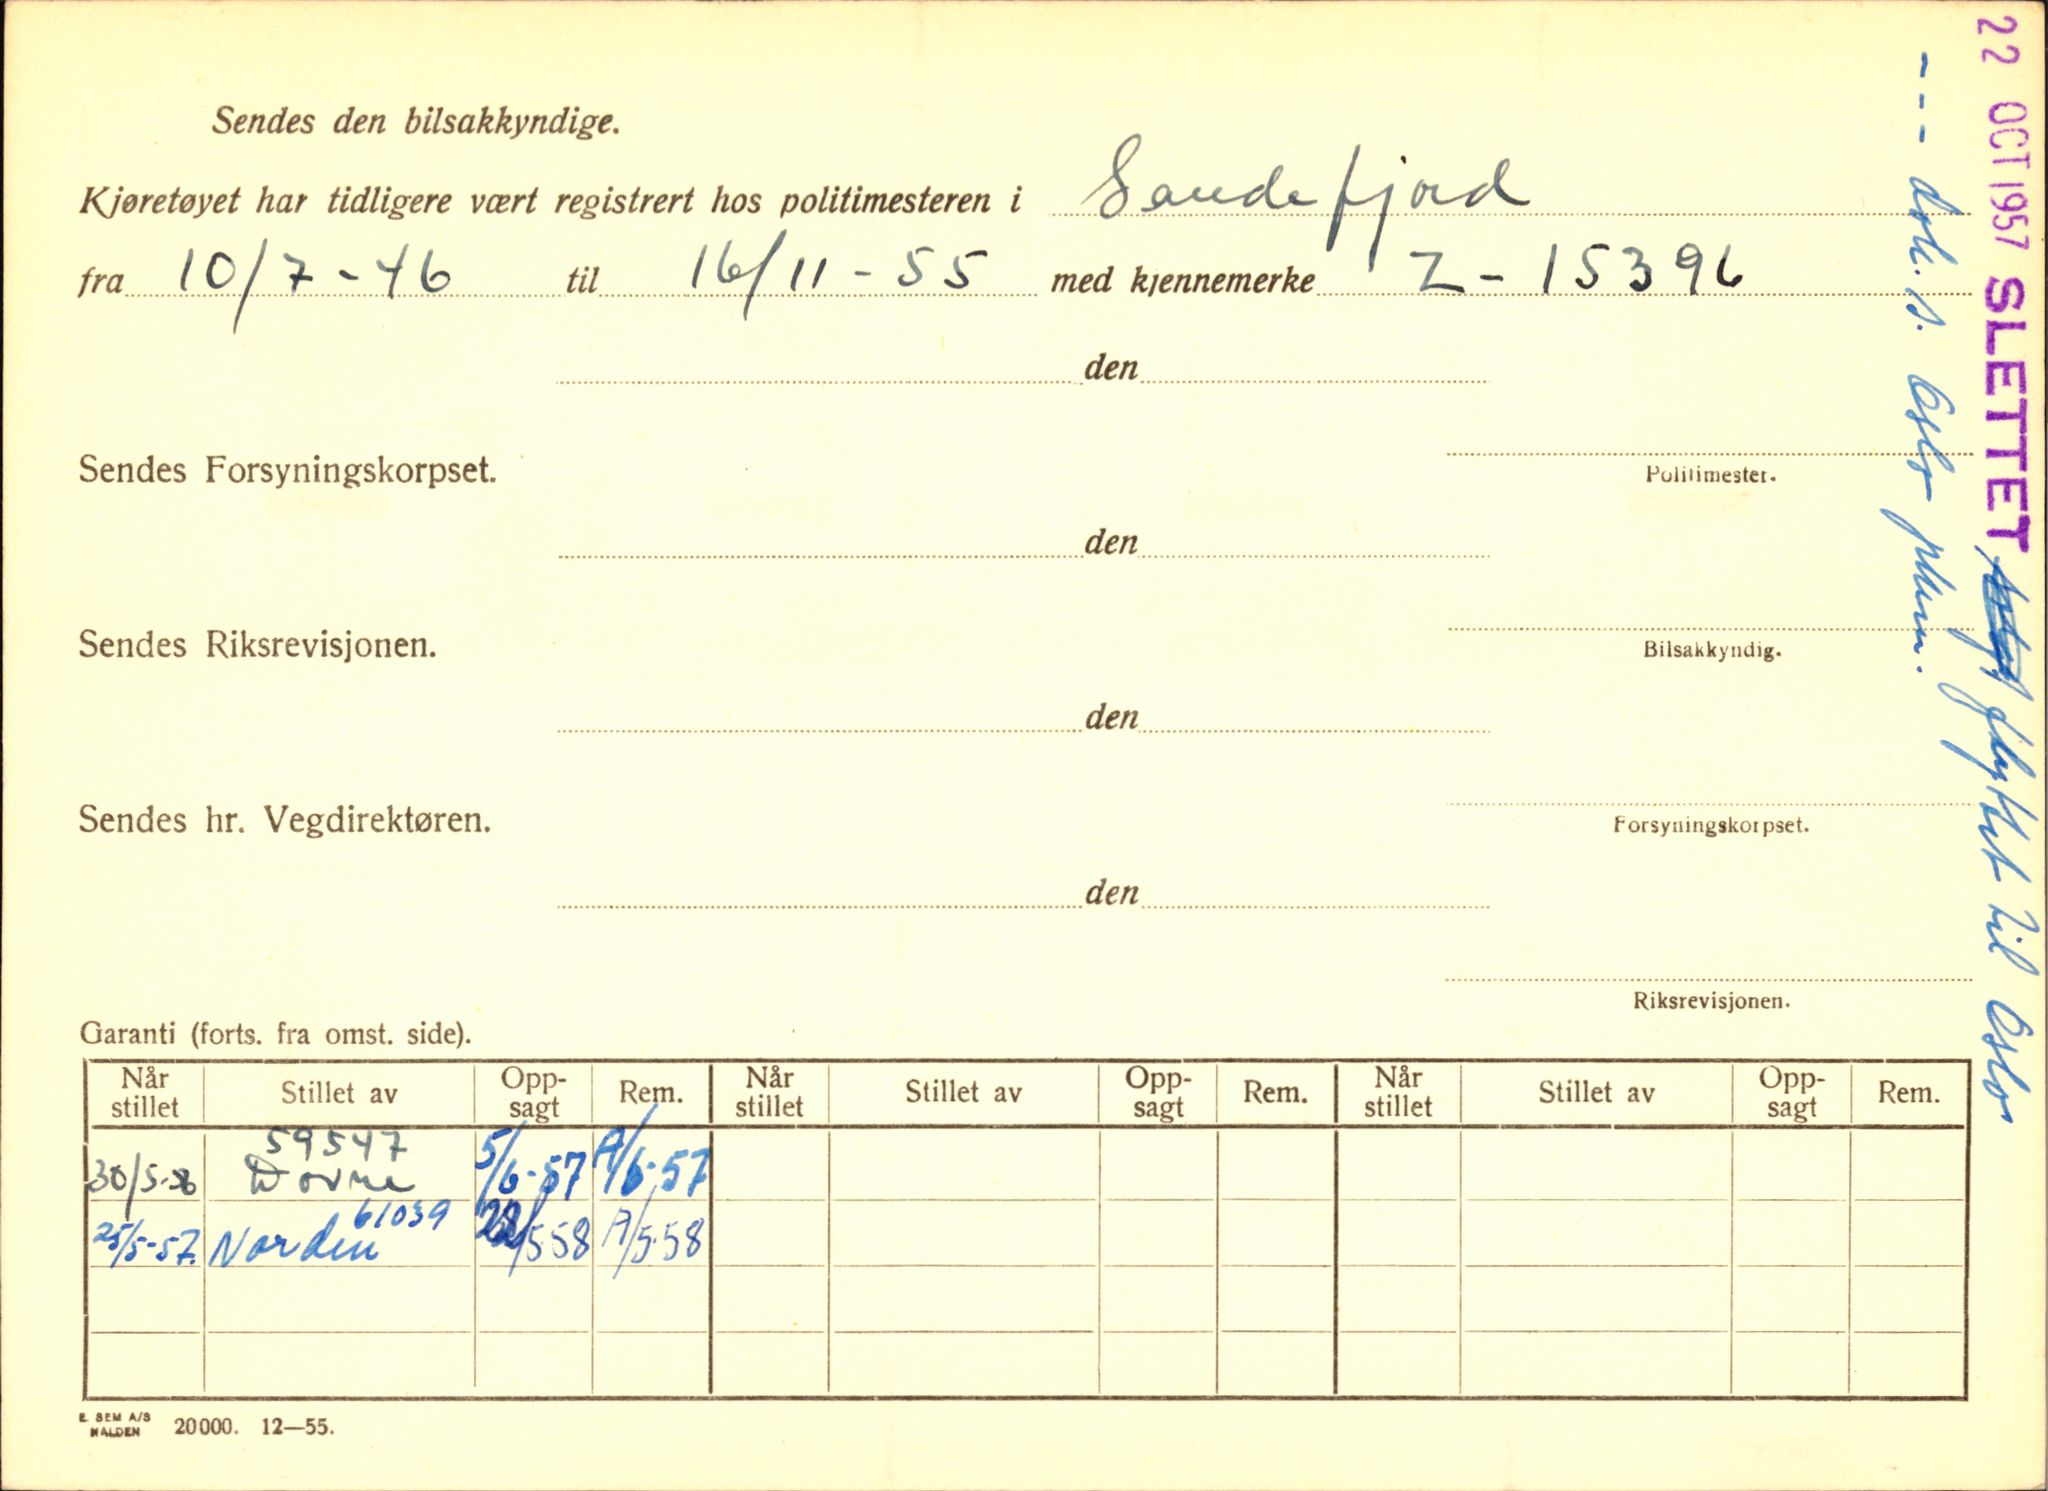 Sendes den bilsakkyndige.
Kjøretøyet har tidligere vært registrert hos politimesteren i Sandefjord
fra 10/7-46 til 16/11-55 med kjennemerke Z-15396
den
Sendes Forsyningskorpset.
Politimester.
den
Sendes Riksrevisjonen.
Bilsakkyndig.
den
Sendes hr. Vegdirektøren.
Forsyningskorpset.
den
Riksrevisjonen.
Garanti (forts. fra omst. side).
Når stillet Stillet av Opp-sagt Rem. Når stillet Stillet av Opp-sagt Rem. Når stillet Stillet av Opp-sagt Rem.
59547
30/5-56 Dovre 5/6-57 A/6-57
61039
25/5-57. Norden 28/5 58 A/5-58
E. SEM A/S
HALDEN
20000. 12—55.
22 OCT 1957 SLETTET flyttet til Oslo
--- dok. s. Oslo